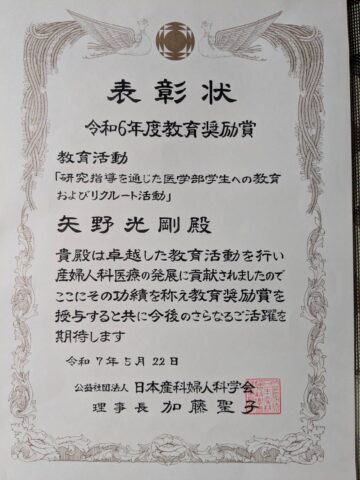 表彰状
令和6年度教育奨励賞
教育活動
「研究指導を通じた医学部学生への教育
およびリクルート活動」
矢野光剛殿
貴殿は卓越した教育活動を行い
産婦人科医療の発展に貢献されましたので
ここにその功績を称え教育奨励賞を
授与すると共に今後のさらなるご活躍を
期待します
令和7年5月22日
公益社団法人 日本産科婦人科学会
理事長 加藤聖子